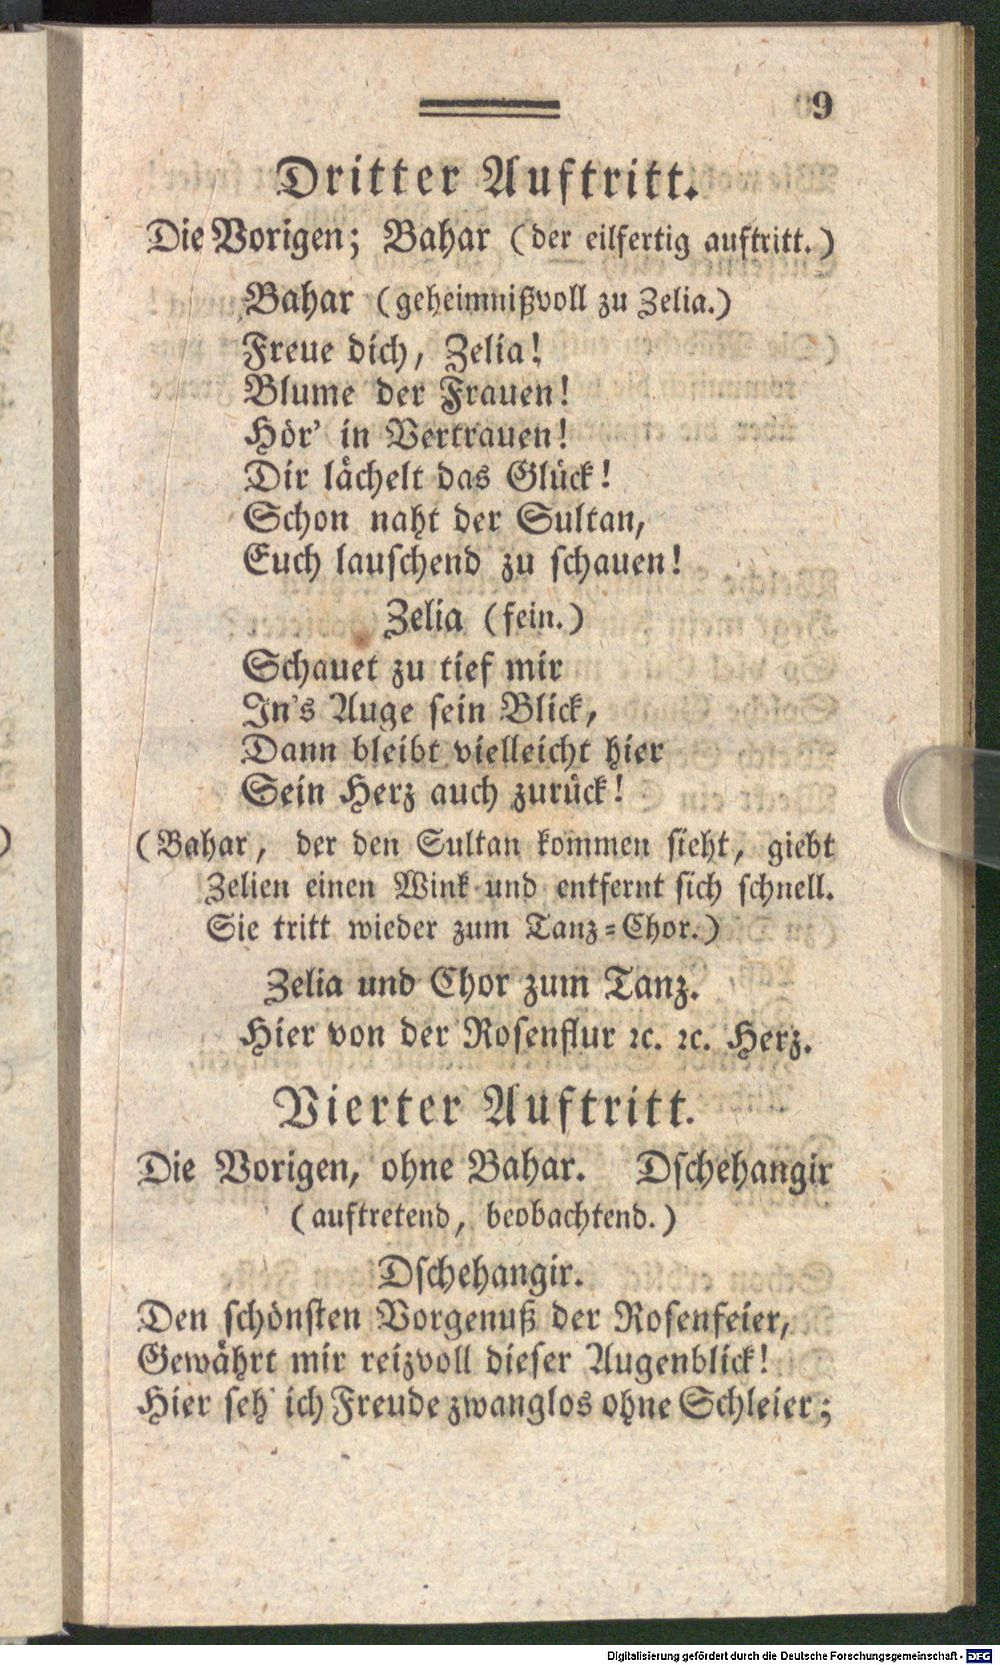 9
Dritter Auftritt.
Die Vorigen; Bahar (der eilfertig auftritt.)
Bahar (geheimnißvoll zu Zelia.)
Freue dich, Zelia!
Blume der Frauen!
Hör' in Vertrauen!
Dir lächelt das Glück!
Schon naht der Sultan,
Euch lauschend zu schauen!
Zelia (fein.)
Schauet zu tief mir
In's Auge sein Blick,
Dann bleibt vielleicht hier
Sein Herz auch zurück!
(Bahar, der den Sultan kommen sieht, giebt
Zelien einen Wink und entfernt sich schnell.
Sie tritt wieder zum Tanz=Chor.)
Zelia und Chor zum Tanz.
Hier von der Rosenflur ꝛc. ꝛc. Herz.
Vierter Auftritt.
Die Vorigen, ohne Bahar. Dschehangir
(auftretend, beobachtend.)
Dschehangir.
Den schönsten Vorgenuß der Rosenfeier,
Gewährt mir reizvoll dieser Augenblick!
Hier seh' ich Freude zwanglos ohne Schleier;
Digitalisierung gefördert durch die Deutsche Forschungsgemeinschaft - DFG